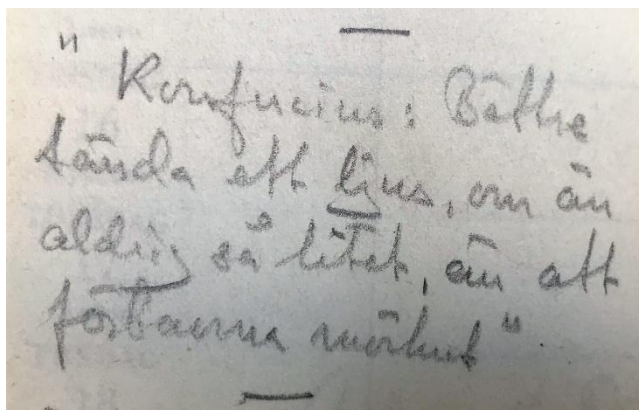 "Konfucius: Bättre
tända ett ljus, om än
aldrig så litet, än att
förbanna mörkret"